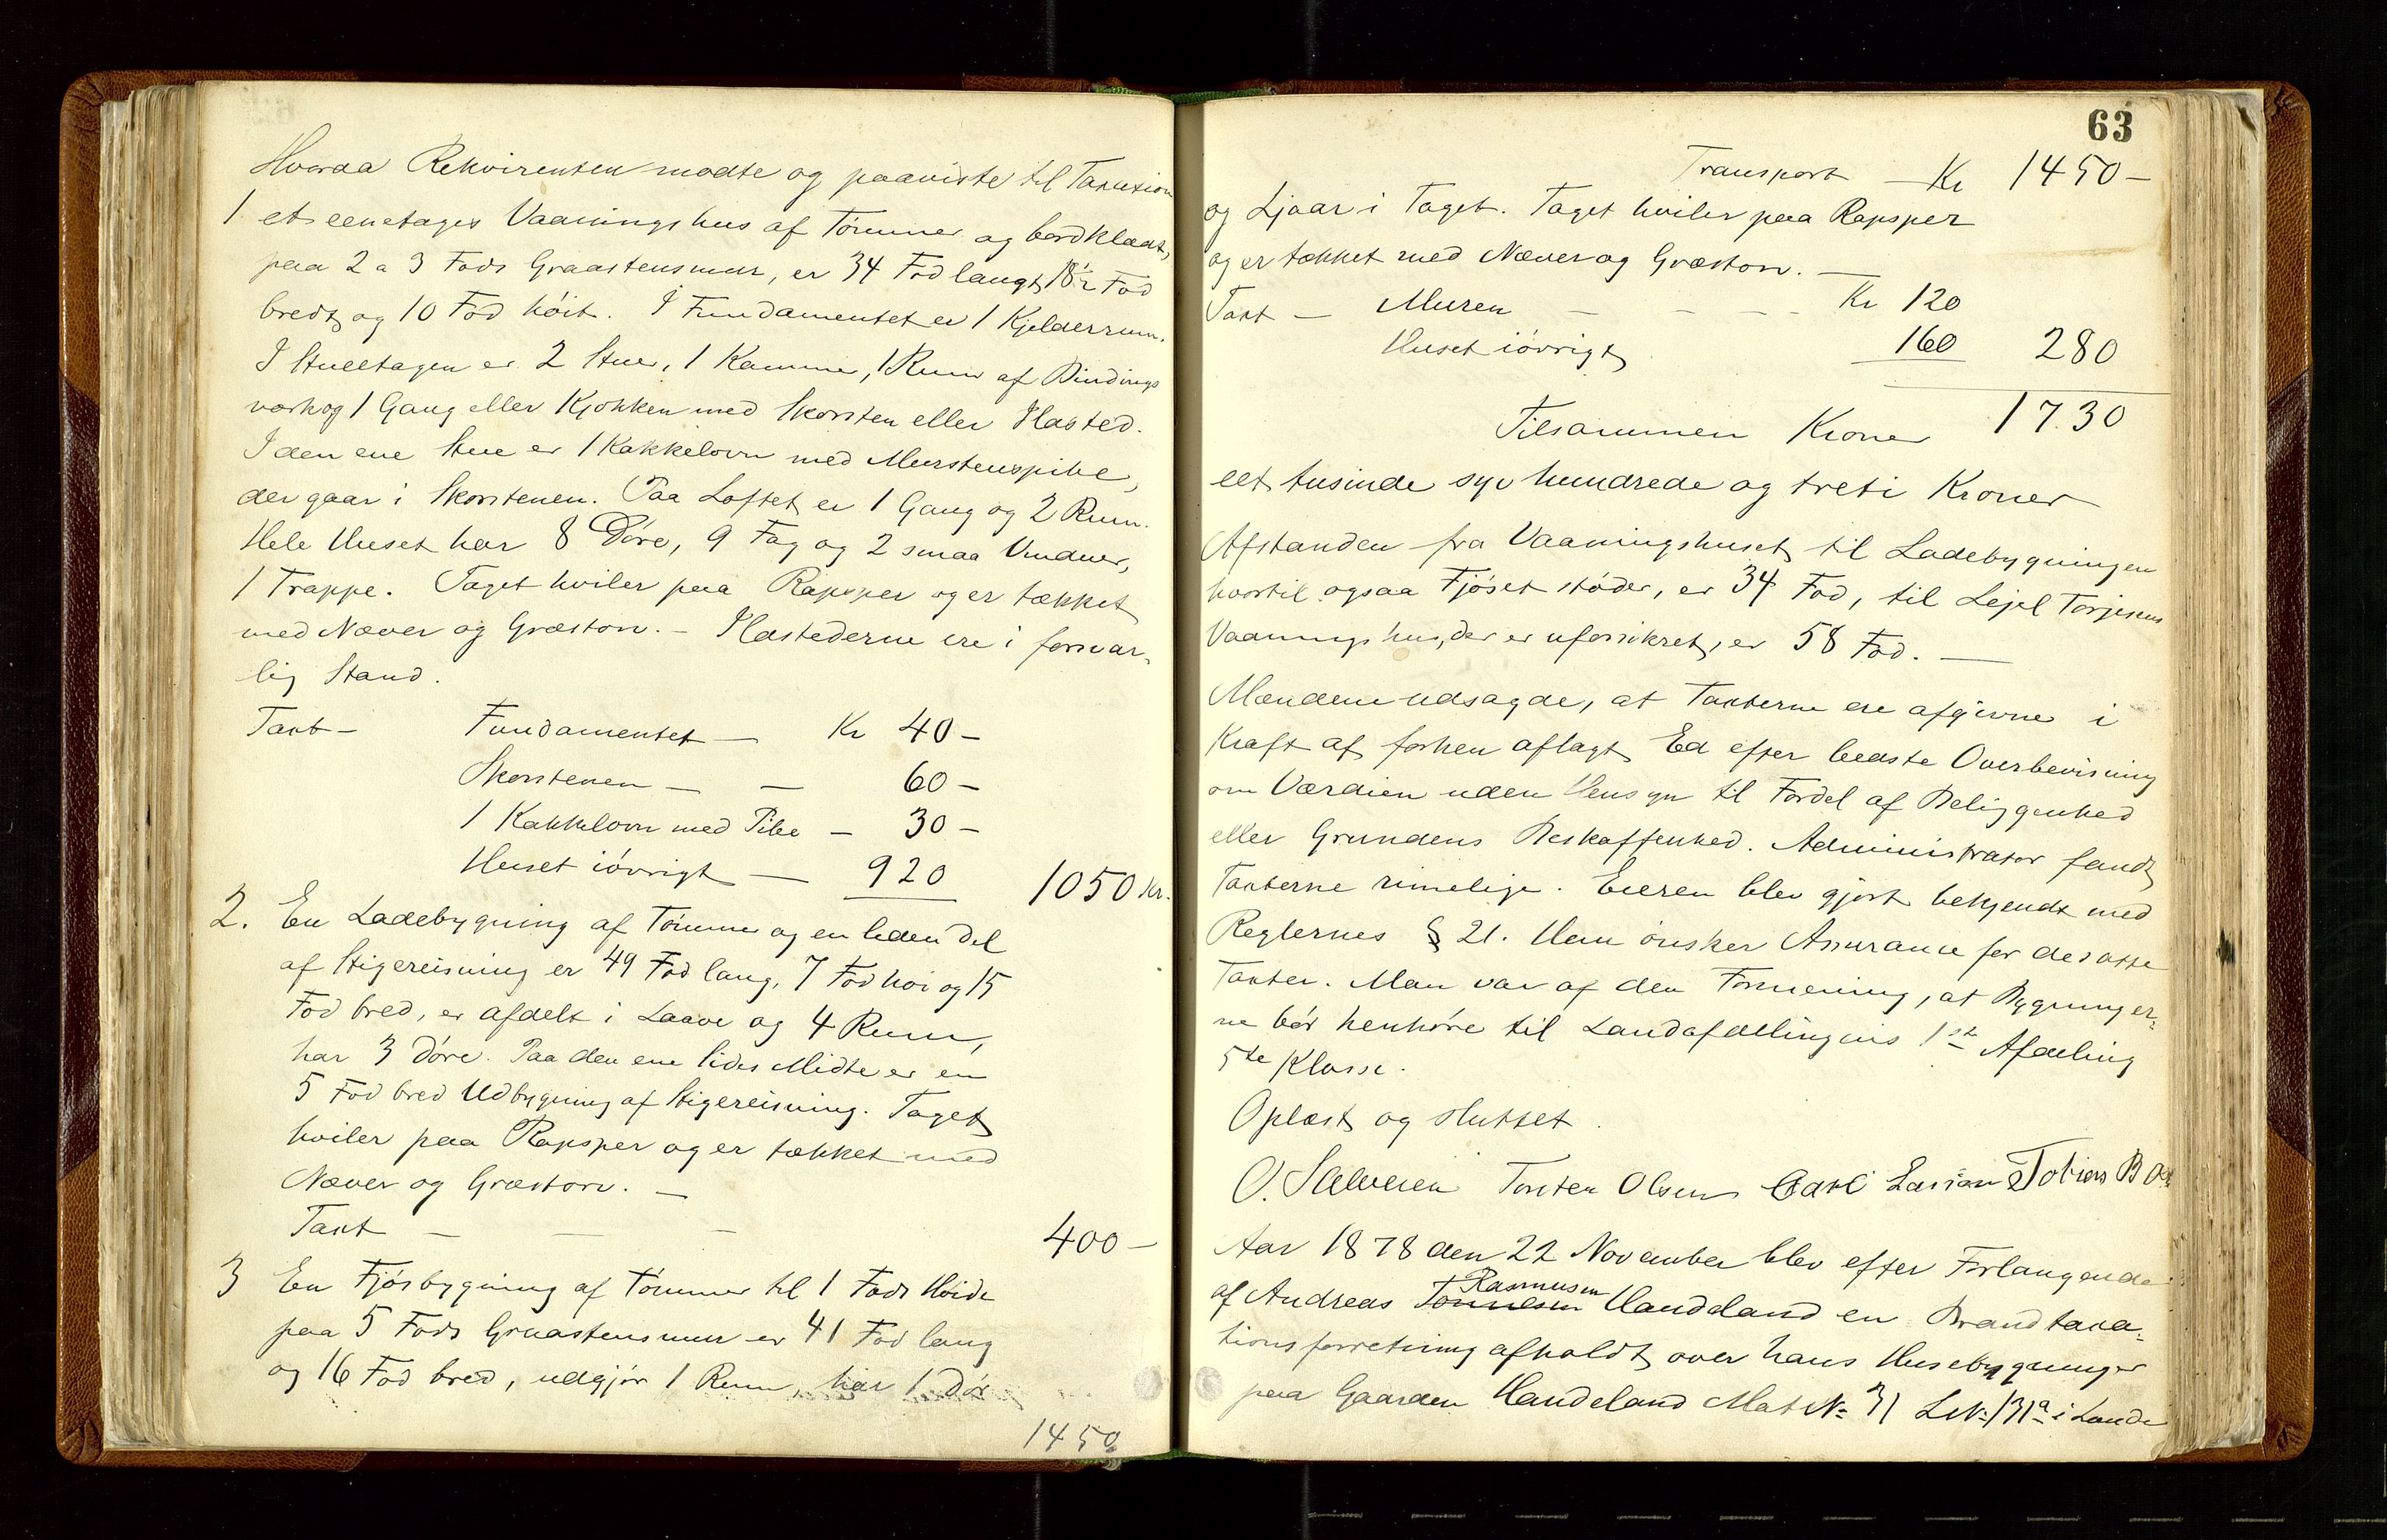 Hvorda Rekvirenten mødte og paaviste til Taxation
1 et eenetages Vaaningshus af Tømmer og bordklædt,
paa 2 a 3 Fods Graastensmur, er 34 Fod langt, 18½ Fod
bredt og 10 Fod höit. I Fundamentet er 1 Kjelderrum.
I Stueetagen er 2 Stuer, 1 Kammer, 1 Rum af Bindings
værk og 1 Gang eller Kjøkken med Skorsten eller Ildsted.
I den ene Stue er 1 Kakkelovn med Murstenspibe,
der gaar i Skorstenen. Paa Loftet er 1 Gang og 2 Rum.
Hele Huset har 8 Döre, 9 Fag og 2 smaa Vinduer,
1 Trappe. Taget hviler paa Rapsper og er tækket
med Næver og Græstorv. - Ildstederne ere i forsvar-
lig Stand.
Taxt - Fundamentet - Kr 40 -
Skorstenen - - 60 -
1 Kakkelovn med Pibe - 30 -
Huset iövrigt - 920 1050 Kr.
2. En Ladebygning af Tömmer og en liden Del
af Stigereisning er 49 Fod lang, 7 Fod höi og 15
Fod bred, er afdelt i Laave og 4 Rum,
har 3 Döre. Paa den ene Sides Midte er en
5 Fod bred Udbygning af Stigereisning. Taget
hviler paa Rapsper og er tækket med
Næver og Græstorv. -
Taxt - - - 400 -
3 En Fjösbygning af Tömmer til 1 Fods Höide
paa 5 Fods Graastensmur er 41 Fod lang
og 16 Fod bred, udgjör 1 Rum, har 1 Dör
1450
63
Transport - Kr 1450 -
og Ljaar i Taget. Taget hviler paa Rapsper
og er tækket med Næver og Græstorv. -
Taxt - Muren - - - Kr 120
Huset iövrigt 160 280
Tilsammen Kroner 1730
eet tusinde syv hundrede og treti Kroner
Afstanden fra Vaaningshuset til Ladebygningen
hvortil ogsaa Fjöset stöder, er 34 Fod, til Lejel Torjesens
Vaaningshus, der er uforsikret, er 58 Fod. -
Mændene udsagde, at Taxterne ere afgivne i
Kraft af forhen aflagt Ed efter bedste Overbevisning
om Værdien uden Hensyn til Fordel af Beliggenhed
eller Grundens Beskaffenhed. Administrator fandt
Taxterne rimelige. Eieren blev gjort bekjendt med
Reglernes § 21. Han önsker Assurance for des
Taxter. Man var af den Formening, at Bygninger-
ne bör henhöre til Landafdelingens 1ste Afdeling
5te Klasse.
Oplæst og sluttet.
O. Torsten Olsen Carl Larsen Tobias B
Aar 1878 den 22 November blev efter Forlangende
Rasmusen
af Andreas Tønnesen Handeland en Brandtaxa-
tionsforretning afholdt over hans Husebygninger
paa Gaarden Handeland Mat № 31 L№ 131a i Lunde